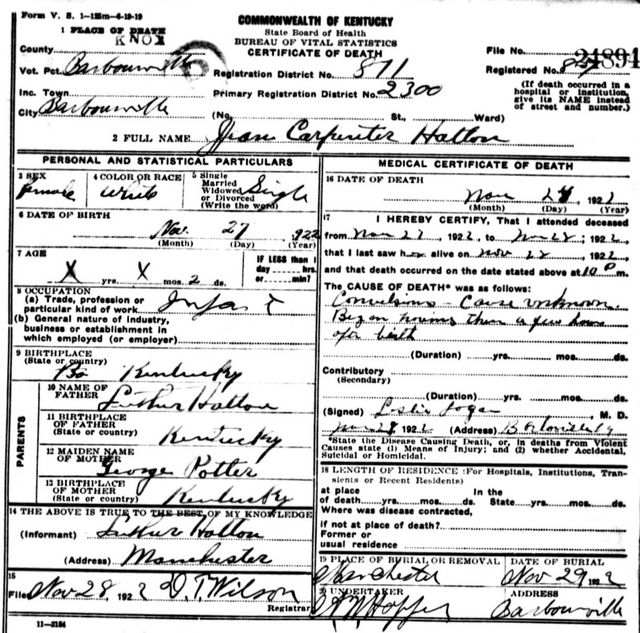 Form V. S. 1-125m-4-19-19
COMMONWEALTH OF KENTUCKY
State Board of Health
BUREAU OF VITAL STATISTICS
CERTIFICATE OF DEATH
1 PLACE OF DEATH
County KNOX
Vot. Pct. Barbourville
Inc. Town
City Barbourville
Registration District No. 811
Primary Registration District No. 2300
File No. 24894
Registered No.
(If death occurred in a
hospital or institution,
give its NAME instead
of street and number.)
(No. St., Ward)
2 FULL NAME Jean Carpenter Hatton
PERSONAL AND STATISTICAL PARTICULARS
3 SEX Female
4 COLOR OR RACE White
5 Single
Married
Widowed
or Divorced
(Write the word) Single
6 DATE OF BIRTH
Nov. 27 1922
(Month) (Day) (Year)
7 AGE
X yrs. X mos. 2 ds.
IF LESS than 1
day hrs.
or min.?
8 OCCUPATION
(a) Trade, profession or
particular kind of work Infant
(b) General nature of industry,
business or establishment in
which employed (or employer)
9 BIRTHPLACE
(State or country) Kentucky
PARENTS
10 NAME OF
FATHER Luther Hatton
11 BIRTHPLACE
OF FATHER
(State or country) Kentucky
12 MAIDEN NAME
OF MOTHER Potter
13 BIRTHPLACE
OF MOTHER
(State or country) Kentucky
14 THE ABOVE IS TRUE TO THE BEST OF MY KNOWLEDGE
(Informant) Luther Hatton
(Address) Manchester
15
Filed Nov 28, 1922 D. T. Wilson
Registrar
11-3184
MEDICAL CERTIFICATE OF DEATH
16 DATE OF DEATH
Nov 28, 1922
(Month) (Day) (Year)
17 I HEREBY CERTIFY, That I attended deceased
from Nov 27 1922, to Nov 28, 1922
that I last saw her alive on Nov 28 1922,
and that death occurred on the date stated above at 10 P m.
The CAUSE OF DEATH* was as follows:
Convulsions - Cause unknown.
Began than a few hours
after birth
(Duration) yrs. mos. ds.
Contributory
(Secondary)
(Duration) yrs. mos. ds.
(Signed) Leslie Logan, M. D.
Nov 28 1922 (Address)
*State the Disease Causing Death, or, in deaths from Violent
Causes state (1) Means of Injury; and (2) whether Accidental,
Suicidal or Homicidal.
18 LENGTH OF RESIDENCE (For Hospitals, Institutions, Tran-
sients or Recent Residents)
at place In the
of death yrs. mos. ds. State yrs. mos. ds.
Where was disease contracted,
if not at place of death?
Former or
usual residence
19 PLACE OF BURIAL OR REMOVAL DATE OF BURIAL
Manchester Nov 29 1922
20 UNDERTAKER ADDRESS
Hopper Barbourville